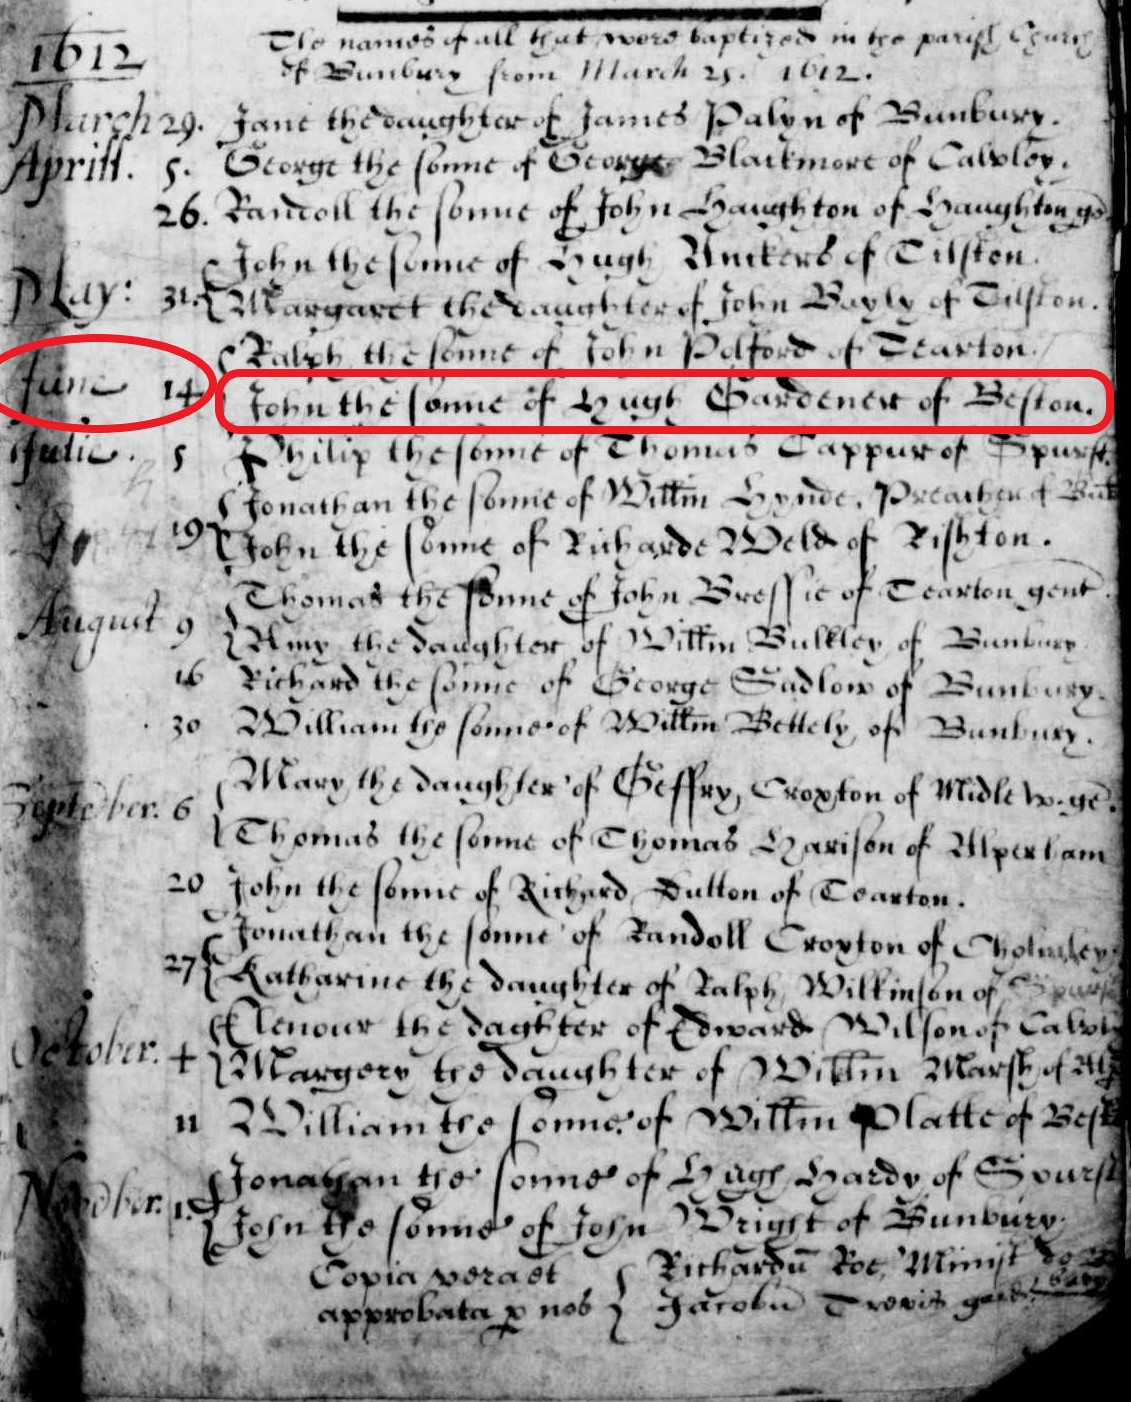 1612
The names of all that were baptized in the parish Church
of Bunbury from March 25. 1612.
March 29. Jane the daughter of James Palyn of Bunbury.
Aprill. 5. George the sonne of George Blackmore of Calvley.
26. Randoll the sonne of John Haughton of Haughton ge
John the sonne of Hugh Unkers of Tilston.
May: 31. Margaret the daughter of John Bayly of Tilston.
Ralph the sonne of John Polford of Tearton.
June 14 John the sonne of Hugh Gardener of Beston.
Julie. 5 Philip the sonne of Thomas Cappur of Spurst
Jonathan the sonne of Willm Hynde, Preacher of
19 John the sonne of Richarde Weld of Rishton.
Thomas the sonne of John Bressie of Tearton gent.
August 9 Amy the daughter of Willm Bulkley of Bunbury
16 Richard the sonne of George Sadlow of Bunbury.
30 William the sonne of Willm Bettely of Bunbury.
Mary the daughter of Geffry Croxton of Midlew. ge.
September. 6 Thomas the sonne of Thomas Harison of Alperham
20 John the sonne of Richard Dutton of Tearton.
Jonathan the sonne of Randoll Croxton of Cholmley
27 Katharine the daughter of Ralph Wilkinson of
Elenour the daghter of Edward Wilson of Calvl
October. 4 Margery the daughter of Willm Marsh of Alp
11 William the sonne of Willm Platte of Best
Jonathan the sonne of Hugh Hardy of Spurst
November. 1. John the sonne of John Wright of Bunbury.
Copia vera et Richardū Roe, Minist
approbata p nos Jacobū Trevis gard.